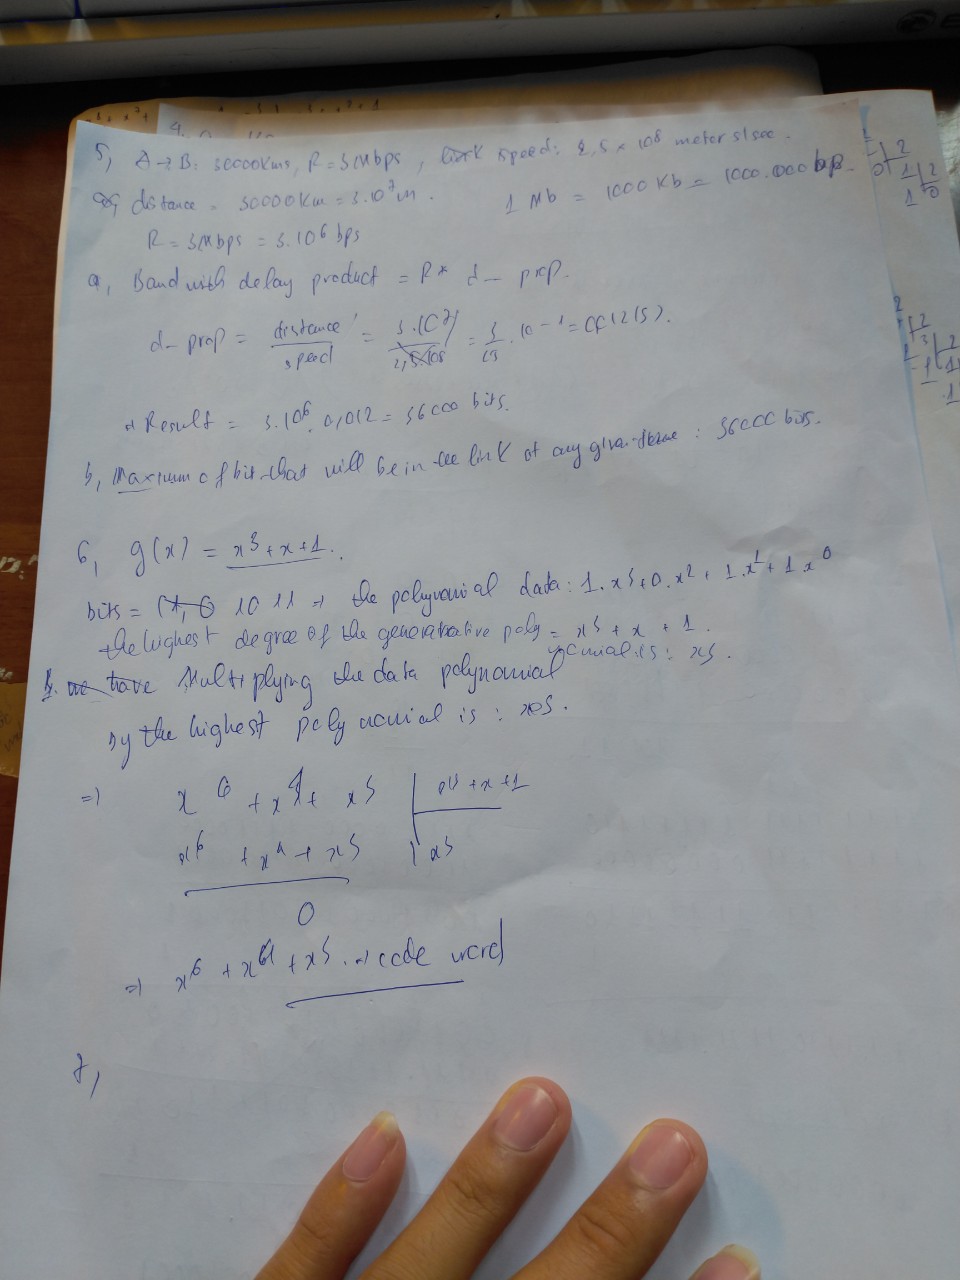 4.
5, A → B: 30000Kms, R = 3Mbps, link speed: 2,5 × 10⁸ meters/sec.
distance = 30000Km = 3.10⁷m. 1 Mb = 1000 Kb = 1000.000 bp
R = 3Mbps = 3.10⁶ bps
a, Bandwith delay product = R* d_prop.
d_prop = distance / speed = 3.10⁷ / 2,5.10⁸ = . 10⁻¹ = (s).
Result = 3.10⁶. 0,012 = 36000 bits.
b, Maximum of bit that will be in the link at any given time : 36000 bits.
6, g(x) = x³ + x + 1.
bits = 10 11 ⇒ the polynomial data: 1.x³ + 0.x² + 1.x¹ + 1x⁰
= x³ + x + 1.
the highest degree of the generative polynomial is: x³.
we have Multiplying the data polynomial
by the highest polynomial is : x³.
⇒ x⁶ + x⁴ + x³ | x³ + x + 1
x⁶ + x⁴ + x³ | x³
0
⇒ x⁶ + x⁴ + x³. → code word
7,